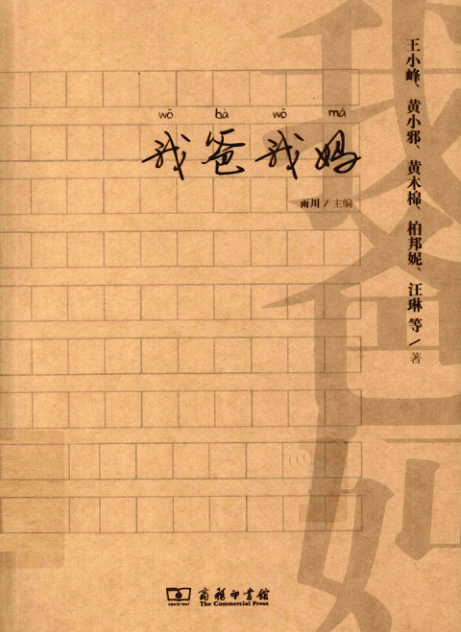 wǒ bà wǒ mā
我爸我妈
雨川 / 主编
王小峰、黄小邪、黄木棉、柏邦妮、汪琳 等 / 著
我爸妈
商務印書館
The Commercial Press